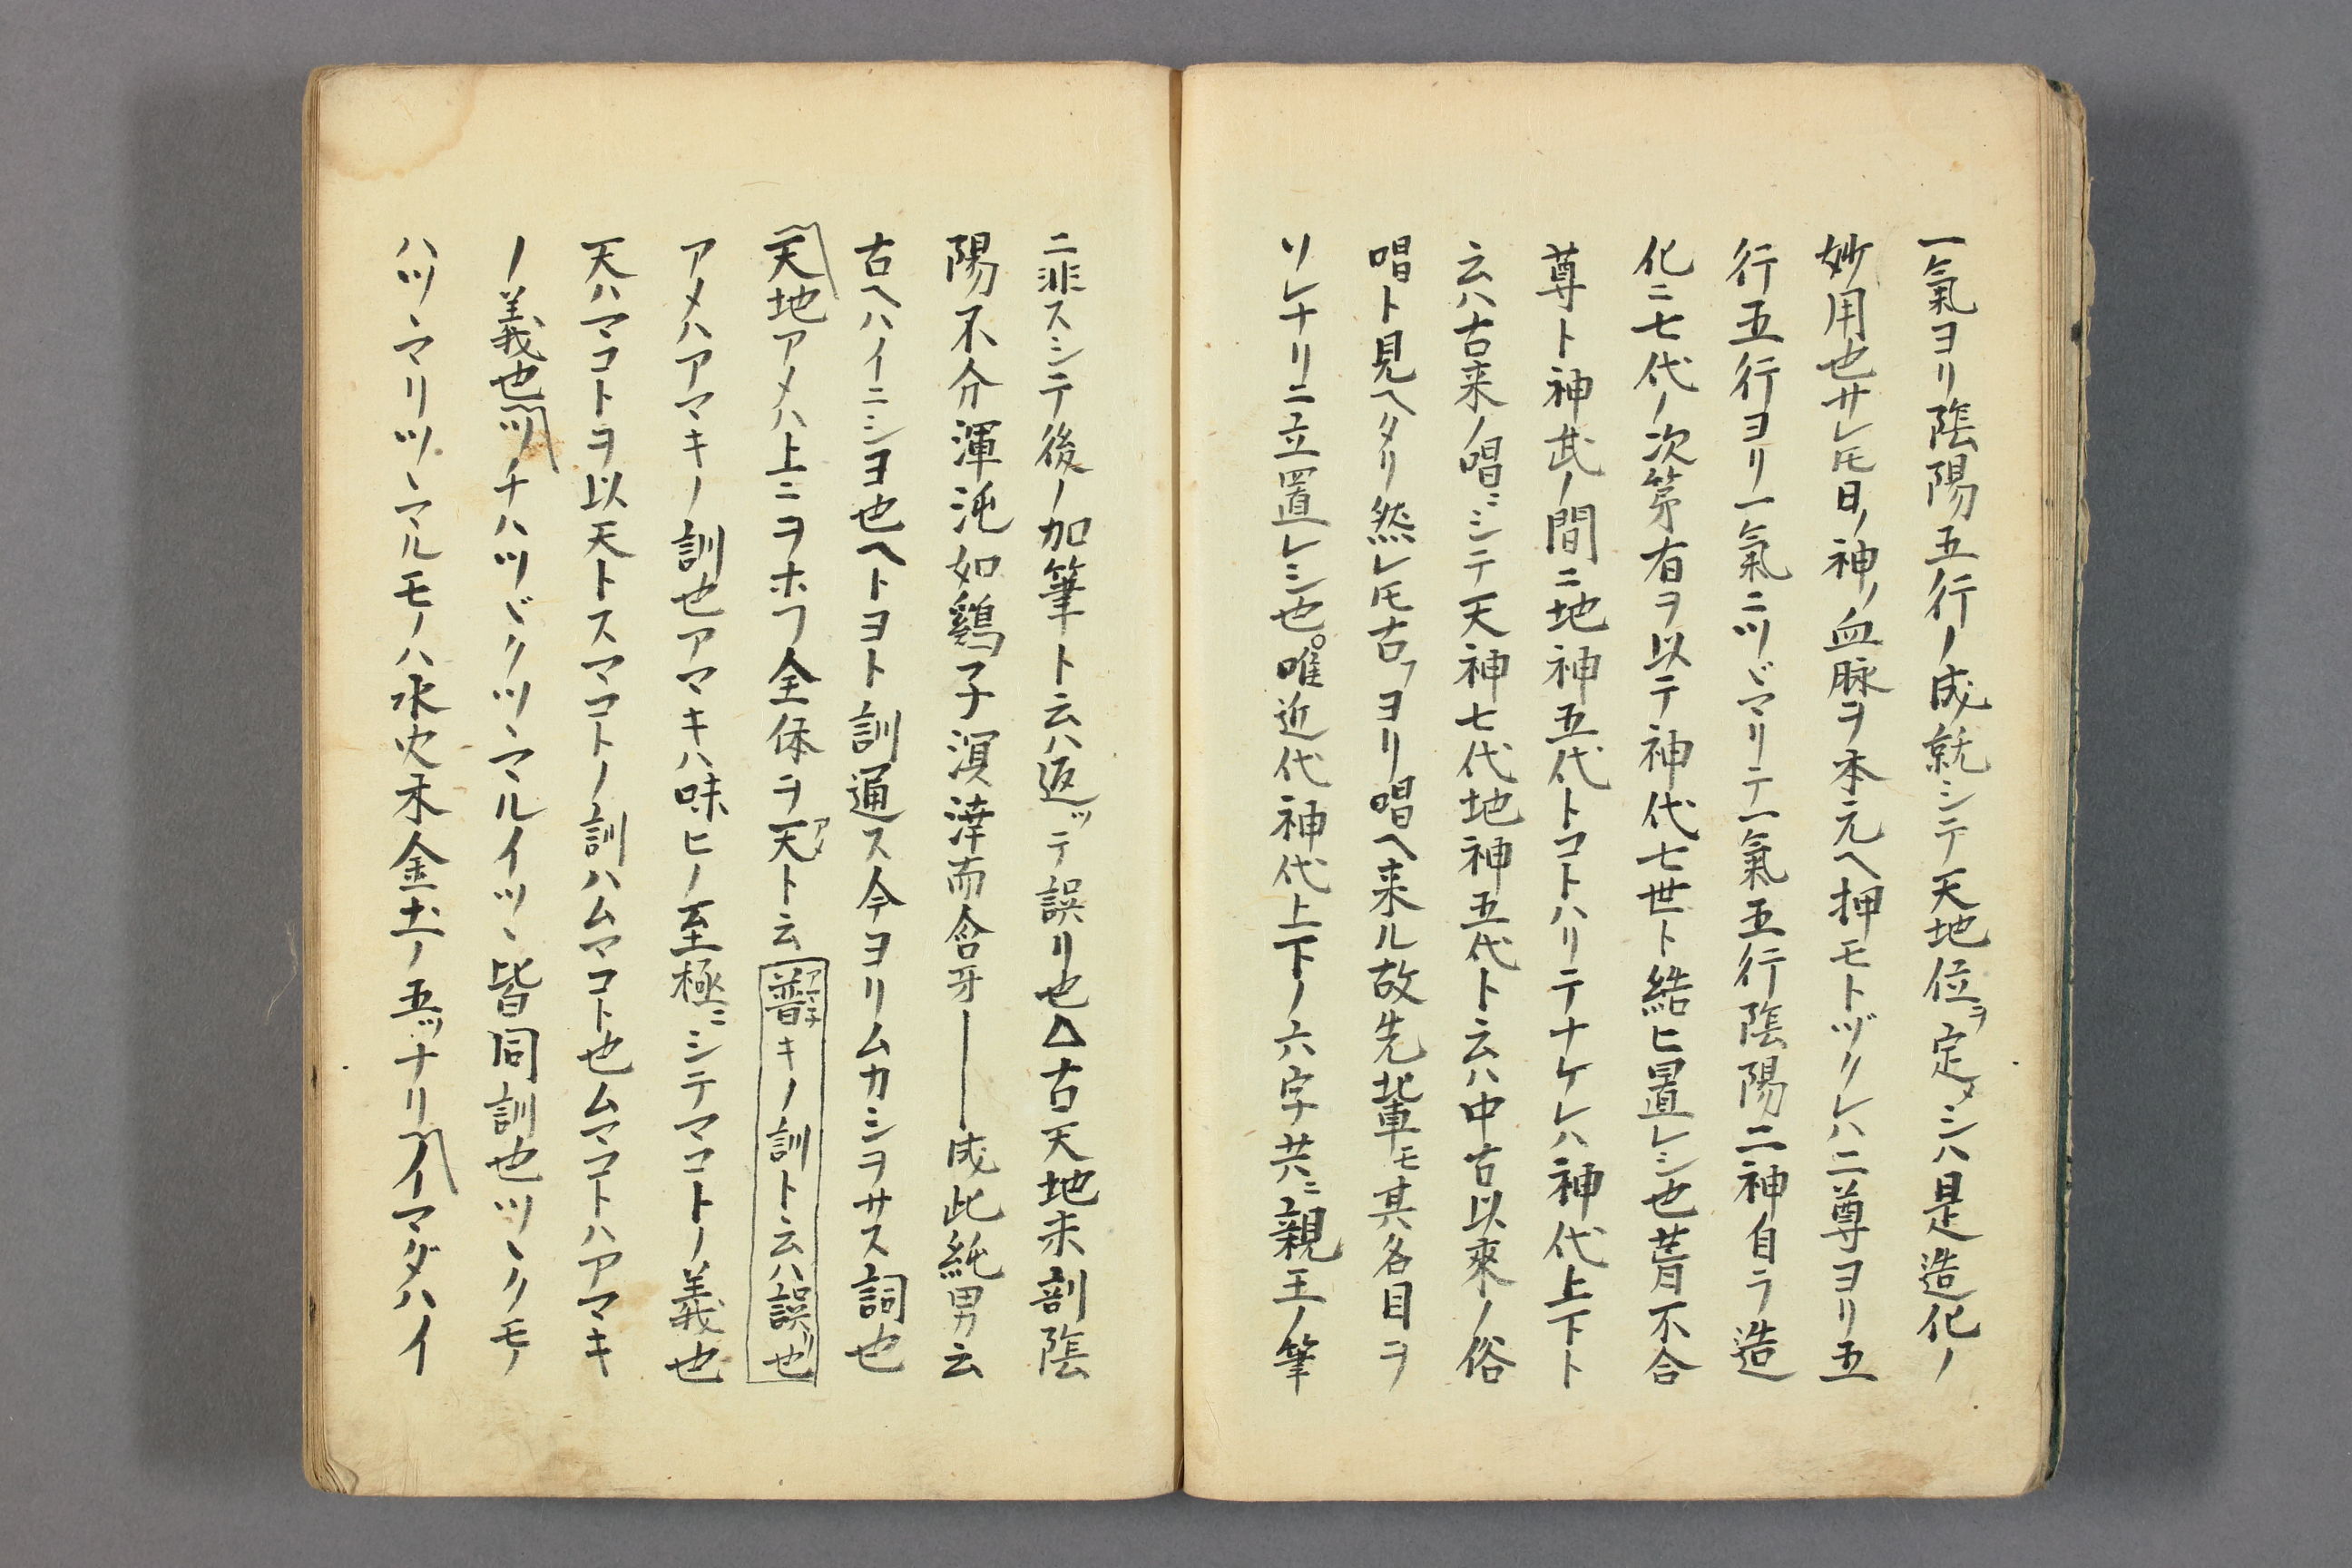 一氣ヨリ陰陽五行ノ成就シテ天地位ヲ定メシハ是造化ノ
妙用也サレ𪜈日ノ神ノ血脉ヲ本元ヘ押モトヅクレハ二尊ヨリ五
行五行ヨリ一氣ニツヾマリテ一氣五行陰陽二神自ラ造
化ニ七代ノ次第有ヲ以テ神代七世ト結ヒ置レシ也葺不合
尊ト神武ノ間ニ地神五代トコトハリテナケレハ神代上下ト
云ハ古来ノ唱ニシテ天神七代地神五代ト云ハ中古以來ノ俗
唱ト見ヘタリ然レ𪜈古ヨリ唱ヘ来ル故先輩モ其名目ヲ
ソレナリニ立置レシ也。唯近代神代上下ノ六字共ニ親王ノ筆
ニ非スシテ後ノ加筆ト云ハ返ッテ誤リ也△古天地未剖陰
陽不分渾沌如鷄子溟涬而含牙――成此純男云
古ヘハイニシヨ也ヘトヨト訓通ス今ヨリムカシヲサス詞也
天地アメハ上ニヲホフ全体ヲ天アメト云普キノ訓ト云ハ誤也
アメハアマキノ訓也アマキハ味ヒノ至極ニシテマコトノ義也
天ハマコトヲ以天トスマコトノ訓ハムマコト也ムマコトハアマキ
ノ義也ツチハツヾクツヽマルイツヽ皆同訓也ツヽクモノ
ハツヽマリツヽマルモノハ水火木金土ノ五ッナリイマダハイ